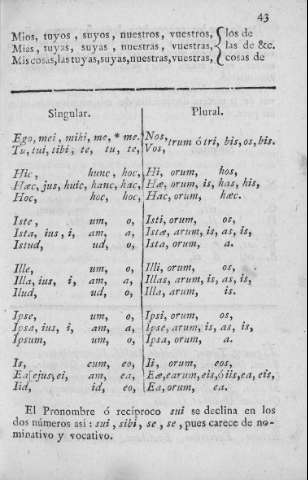 43
Mios, tuyos , suyos , nuestros, vuestros, { los de
Mias , tuyas, suyas , nuestras , vuestras, { las de &c.
Mis cosas, las tuyas, suyas, nuestras, vuestras, { cosas de
Singular. Plural.
Ego, mei, mihi, me, * me. Nos,
Tu, tui, tibi, te, tu, te, Vos, trum ó tri, bis, os, bis.
Hic, hunc, hoc, Hi, orum, hos,
Hæc, jus, huic, hanc, hac, Hæ, orum, is, has, his,
Hoc, hoc, hoc, Hac, orum, hæc.
Iste, um, o, Isti, orum, os,
Ista, ius, i, am, a, Istæ, arum, is, as, is,
Istud, ud, o, Ista, orum, a.
Ille, um, o, Illi, orum, os,
Illa, ius, i, am, a, Illas, arum, is, as, is,
Ilud, ud, o, Illa, arum, is.
Ipse, um, o, Ipsi, orum, os,
Ipsa, ius, i, am, a, Ipse, arum, is, as, is,
Ipsum, um, o, Ipsa, orum, a.
Is, eum, eo, Ii, orum, eos,
Ea[ejus, ei, am, ea, Eæ, earum, eis, ó iis, ea, eis,
Iid, id, eo, Ea, orum, ea.
El Pronombre ó recíproco sui se declina en los
dos números asi : sui , sibi , se , se , pues carece de no-
minativo y vocativo.